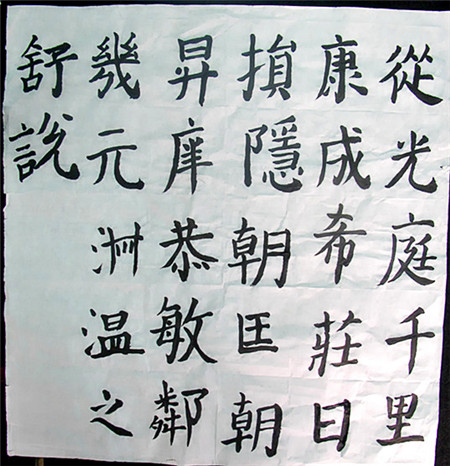 從光庭千里
康成希莊日
損隱朝匡朝
昇庠恭敏鄰
幾元洲温之
舒說